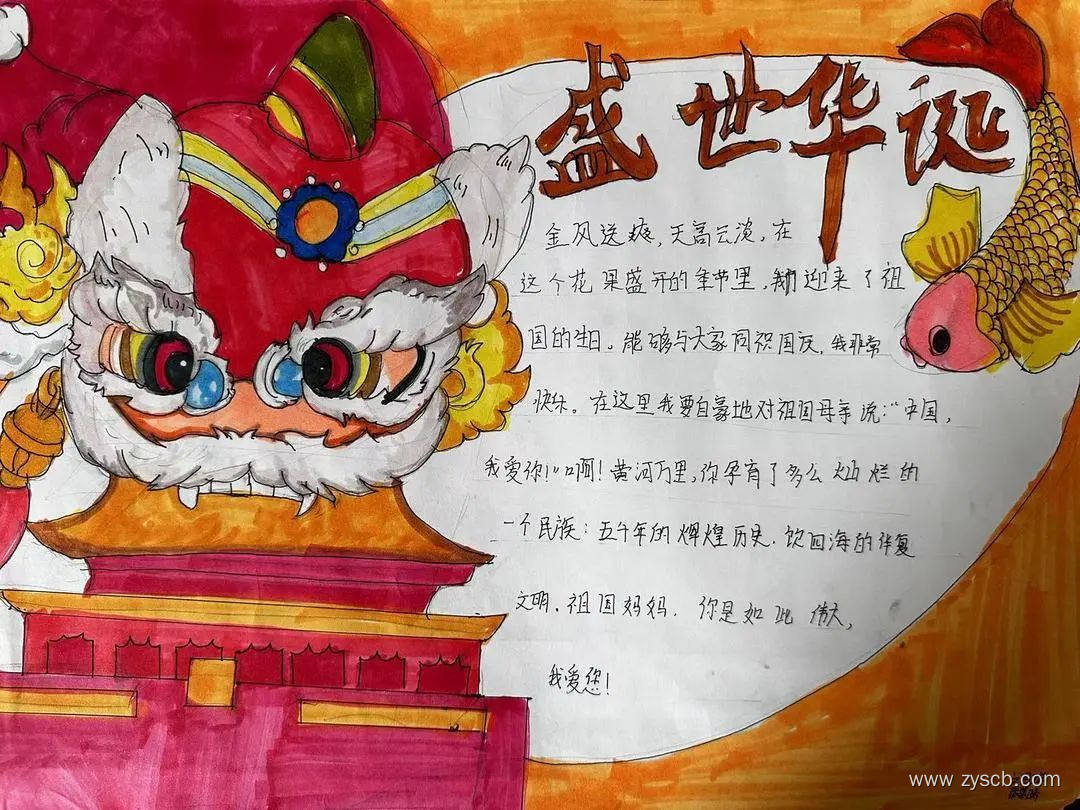 盛世华诞
金风送爽，天高云淡，在
这个花果盛开的季节里，我们迎来了祖
国的生日。能够与大家同祝国庆，我非常
快乐。在这里我要自豪地对祖国母亲说：“中国，
我爱你！”啊！黄河万里，你孕育了多么灿烂的
一个民族：五千年的辉煌历史，饮四海的华夏
文明，祖国妈妈，你是如此伟大，
我爱您！
www.zyscb.com